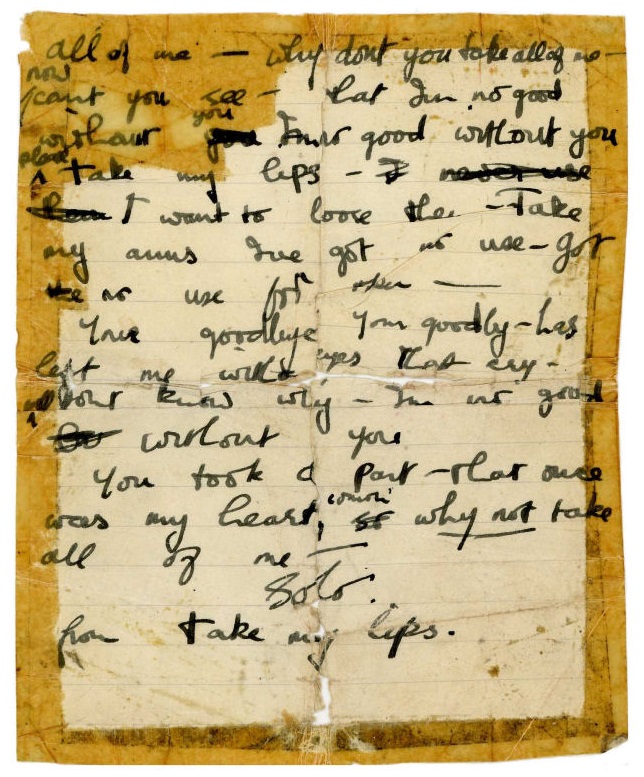 all of me — why dont you take all of me —
now
cant you see - that Im no good
you
without Im no good without you
please
take my lips - I never use
I want to loose them - Take
my arms Ive got no use - got
no use for them —
Your goodbye Your goodby - has
left me with eyes that cry -
dont know why - Im no good
without you
You took a part - that once
comon
was my heart, why not take
all of me —
Solo.
from take my lips.